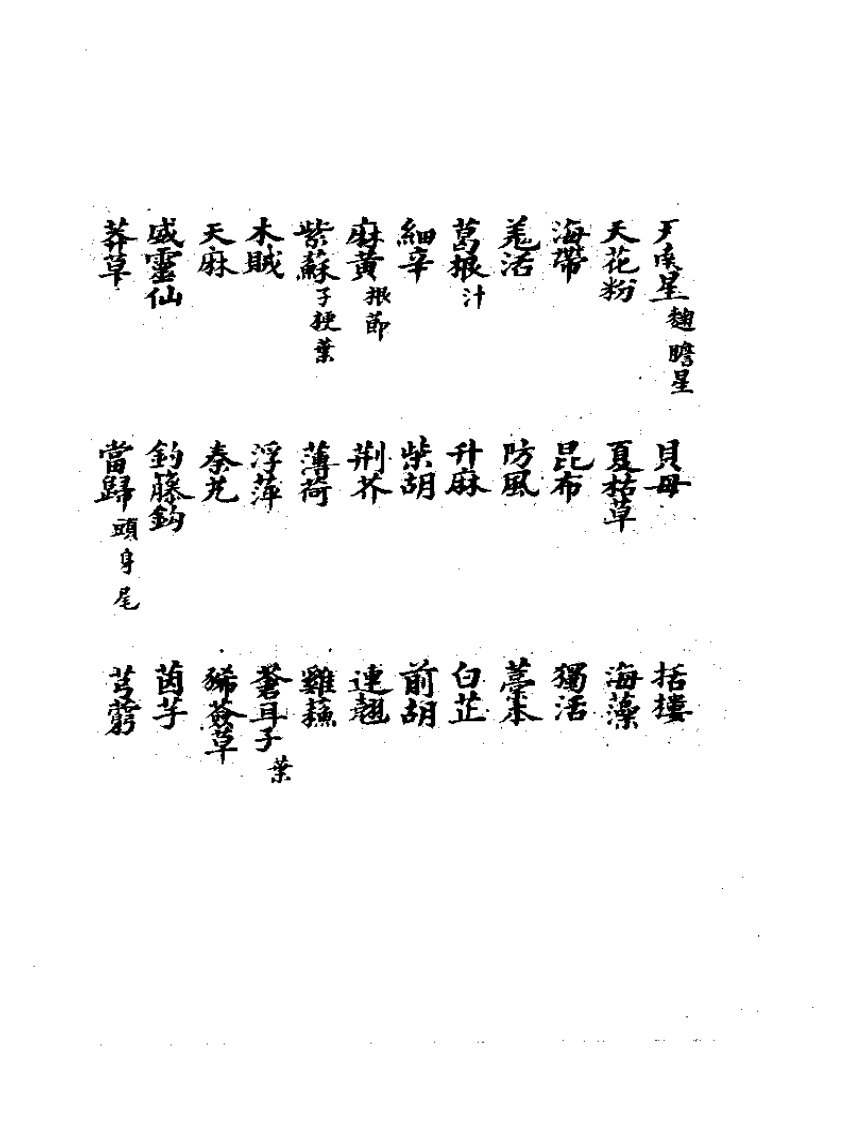 天南星 麯 膽星 貝母 括樓
天花粉 夏枯草 海藻
海帶 昆布 獨活
羌活 防風 藁本
葛根 汁 升麻 白芷
細辛 柴胡 前胡
麻黃 根節 荆芥 連翹
紫蘇 子梗葉 薄荷 雞蘇
木賊 浮萍 蒼耳子 葉
天麻 秦艽 豨薟草
威靈仙 釣藤鈎 茵芋
莽草 當歸 頭身尾 芎藭